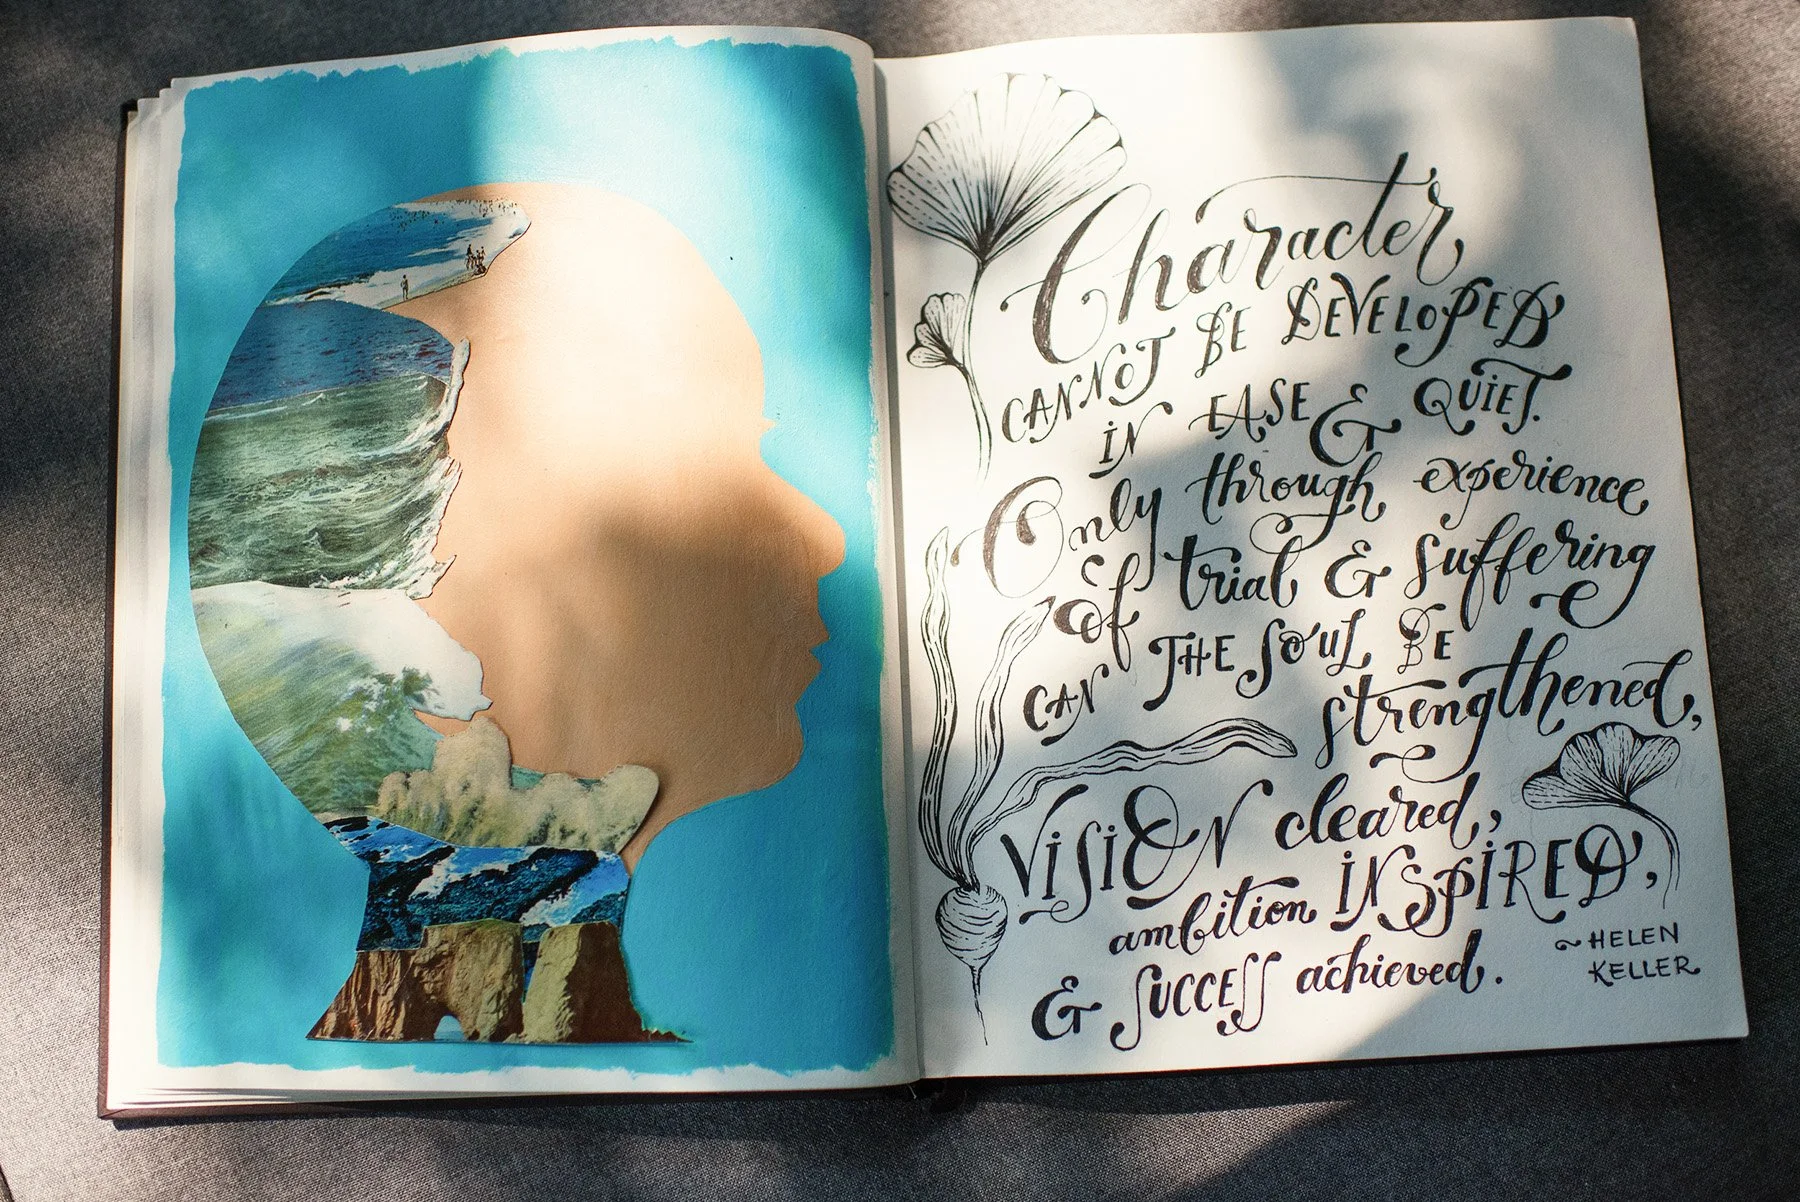 Character
CANNOT BE DEVELOPED
IN EASE & QUIET.
Only through experience
of trial & suffering
CAN THE SOUL BE
strengthened,
VISION cleared,
ambition INSPIRED,
& SUCCESS achieved.
~ HELEN
KELLER